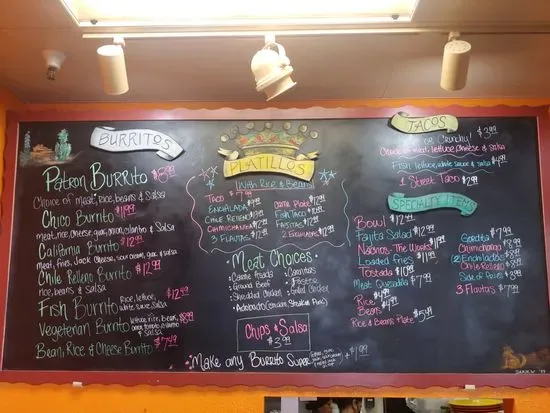 BURRITOS
Patron Burrito $8.99
Choice of meat, rice, beans & Salsa
Chico Burrito $11.99
meat, rice, Cheese, guac, onion, cilantro & Salsa
California Burrito $12.99
meat, fries, Jack Cheese, sour cream, guac & salsa
Chile Relleno Burrito $12.99
rice, beans & salsa
Fish Burrito Rice, lettuce, white sauce, Salsa $12.99
Vegeterian Burrito lettuce, rice, bean, $8.99
& Salsa
Bean, Rice & Cheese Burrito $7.49
PLATILLOS
With Rice & Beans
Taco $7.99
Enchilada $9.99
Chile Relleno
Chimichanga
3 Flautas $12.99
Carne Plate $12.99
Fish Taco
Fajitas $12.99
2 Enchiladas
Meat Choices
Carne Asada
Ground Beef
Shredded Chicken
Carnitas
Bistec
Grilled Chicken
Adobado (Spicy Pork)
Chips & Salsa
$3.99
Make any Burrito Super + $1.99
TACOS
or Crunchy! $3.99
Choice of meat, lettuce, cheese & salsa
Fish, lettuce, white sauce & salsa $4.99
1 Street Taco $2.99
SPECIALTY ITEMS
Bowl $12.99
Fajita Salad $12.99
Nachos - The Works
Loaded Fries $11.99
Tostada $10.99
Meat Quesadilla $7.99
Rice
Beans
Rice & Beans Plate $5.49
Gordita $7.99
Chimichanga $8.99
2 Enchiladas
Chile Relleno
Side of Pork
3 Flautas $7.99